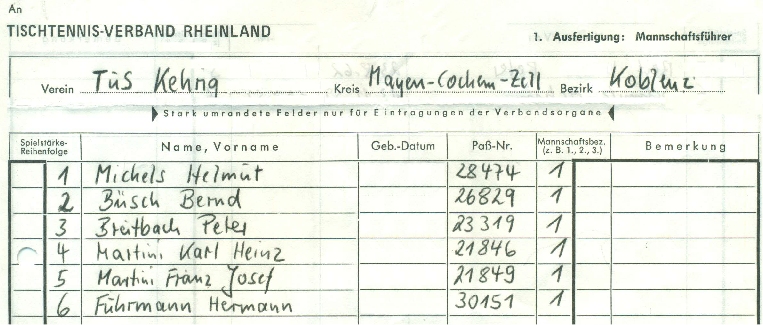 An
TISCHTENNIS-VERBAND RHEINLAND
1. Ausfertigung: Mannschaftsführer
Verein TuS Kehrig Kreis Mayen-Cochem-Zell Bezirk Koblenz
Stark umrandete Felder nur für Eintragungen der Verbandsorgane
Spielstärke-Reihenfolge Name, Vorname Geb.-Datum Paß-Nr. Mannschaftsbez. (z. B. 1., 2., 3.) Bemerkung
1 Michels Helmut 28474 1
2 Büsch Bernd 26829 1
3 Breitbach Peter 23319 1
4 Martini Karl Heinz 21846 1
5 Martini Franz Josef 21849 1
6 Führmann Hermann 30151 1